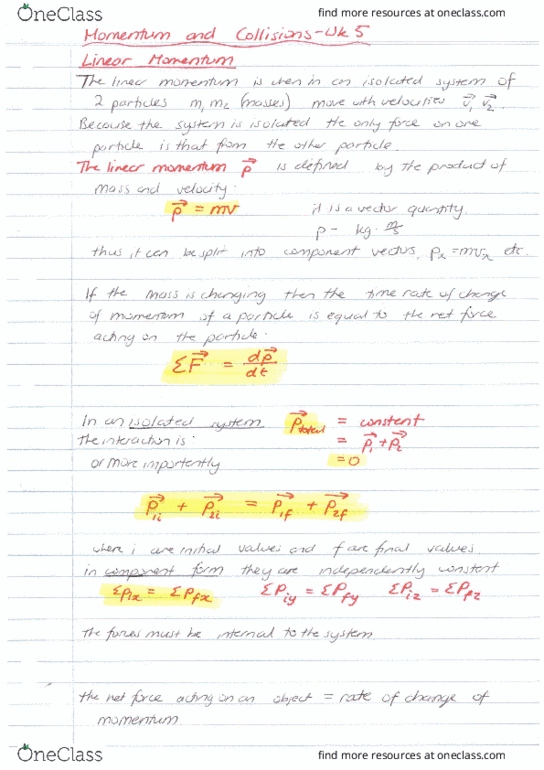 OneClass
find more resources at oneclass.com
Momentum and Collisions-Wk 5
Linear Momentum
The linear momentum is when in an isolated system of
2 particles m₁ m₂ (masses) move with velocities v⃗₁ v⃗₂.
Because the system is isolated the only force on one
particle is that from the other particle.
The linear momentum p⃗ is defined by the product of
mass and velocity.
p⃗ = mv it is a vector quantity.
p - kg. m/s
thus it can be split into component vectors, pₓ = mvₓ etc.
If the mass is changing then the time rate of change
of momentum of a particle is equal to the net force
acting on the particle.
ΣF⃗ = dp⃗/dt
In an isolated system p⃗total = constant
the interaction is: = p⃗₁ + p⃗₂
or more importently = 0
p⃗1i + p⃗2i = p⃗1f + p⃗2f
where i are initial values and f are final values.
in component form they are independently constant
Σpix = Σpfx Σpiy = Σpfy Σpiz = Σpfz
the forces must be internal to the system.
the net force acting on an object = rate of change of
momentum
OneClass
find more resources at oneclass.com